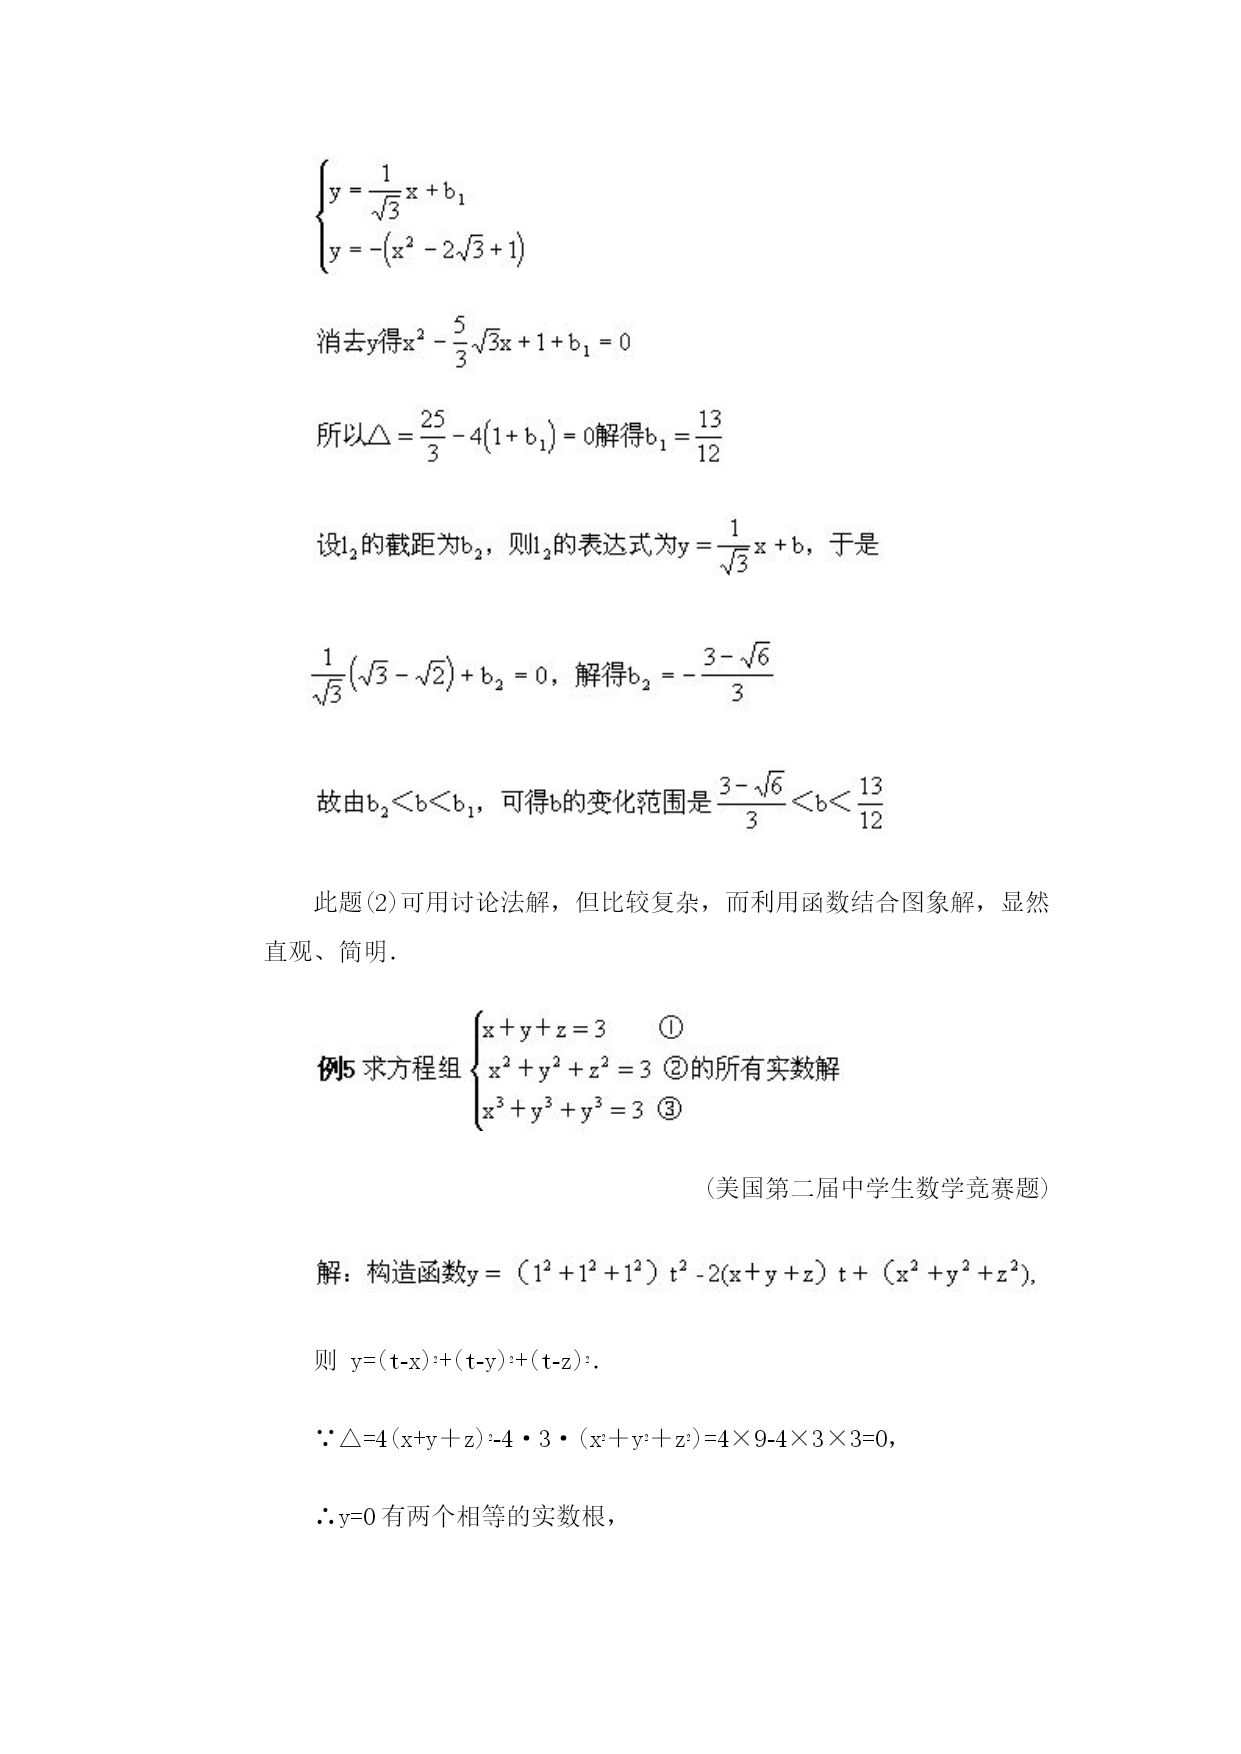 { y = 1/√3 x + b₁
y = -(x² - 2√3 + 1)
消去y得x² - 5/3 √3x + 1 + b₁ = 0
所以△ = 25/3 - 4(1 + b₁) = 0解得b₁ = 13/12
设l₂的截距为b₂，则l₂的表达式为y = 1/√3 x + b，于是
1/√3 (√3 - √2) + b₂ = 0，解得b₂ = - (3-√6)/3
故由b₂＜b＜b₁，可得b的变化范围是 (3-√6)/3 ＜b＜ 13/12
此题(2)可用讨论法解，但比较复杂，而利用函数结合图象解，显然
直观、简明．
x＋y＋z = 3 ①
例5 求方程组 { x² + y² + z² = 3 ②的所有实数解
x³ + y³ + y³ = 3 ③
(美国第二届中学生数学竞赛题)
解：构造函数y = （1² + 1² + 1²）t² - 2(x + y + z）t + （x² + y² + z²),
则 y=(t-x)²+(t-y)²+(t-z)²．
∵△=4(x+y＋z)²-4·3·(x²＋y²＋z²)=4×9-4×3×3=0，
∴y=0 有两个相等的实数根，